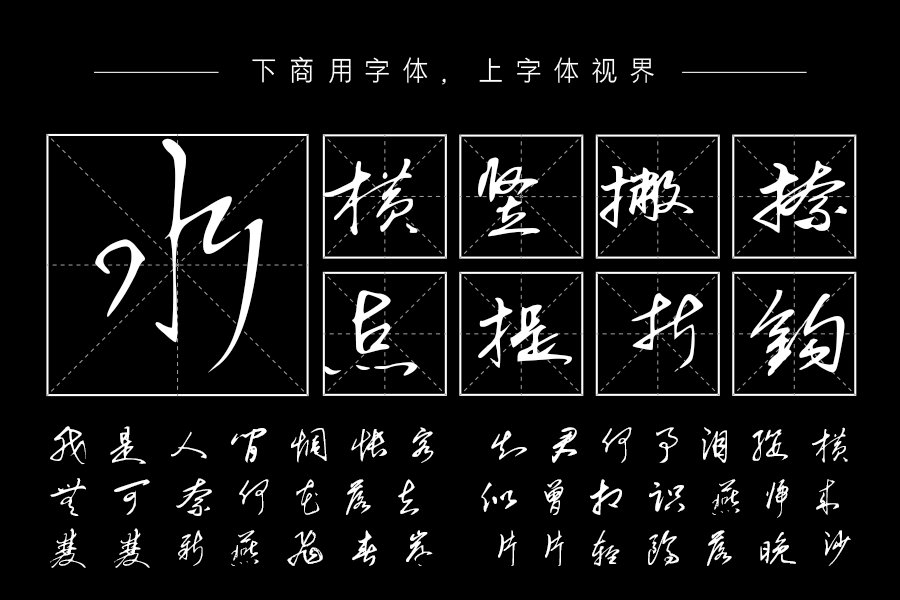 下商用字体，上字体视界
水 横 竖 撇 捺
点 提 折 鈎
我是人间惆怅客 知君何事泪纵横
無可奈何花落去 似曾相识燕归来
雙雙新燕飞春岸 片片轻鸥落晚沙